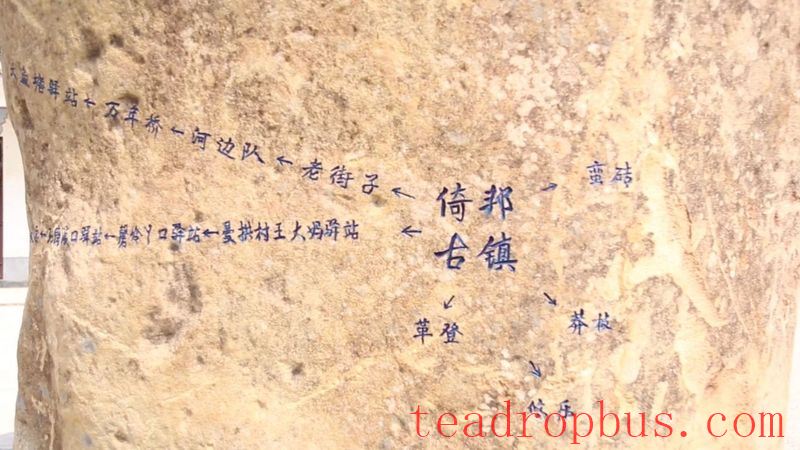 驿站←万年桥←河边队←老街子←
倚邦
古镇
→蛮砖
口驿站←曼拱村王大妈驿站←
↙
革登
↘
莽枝
↘
攸乐
teadropbus.com